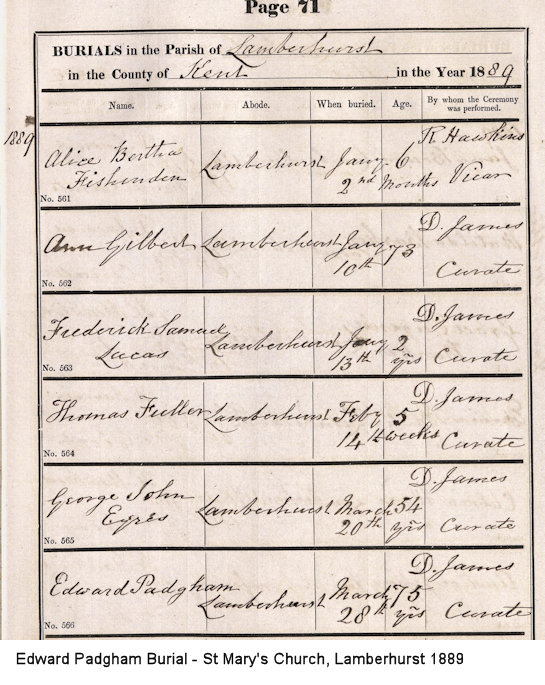 Page 71
BURIALS in the Parish of Lamberhurst
in the County of Kent in the Year 1889
Name. Abode. When buried. Age. By whom the Ceremony was performed.
1889
Alice Bertha Fishenden Lamberhurst Jany 2nd 6 Months R Hawkins Vicar
No. 561
Ann Gilbert Lamberhurst Jany 10th 73 D. James Curate
No. 562
Frederick Samuel Lucas Lamberhurst Jany 13th 2 yrs D. James Curate
No. 563
Thomas Fuller Lamberhurst Feby 14th 5 weeks D. James Curate
No. 564
George John Eyres Lamberhurst March 20th 54 yrs D. James Curate
No. 565
Edward Padgham Lamberhurst March 28th 75 yrs D. James Curate
No. 566
Edward Padgham Burial - St Mary's Church, Lamberhurst 1889